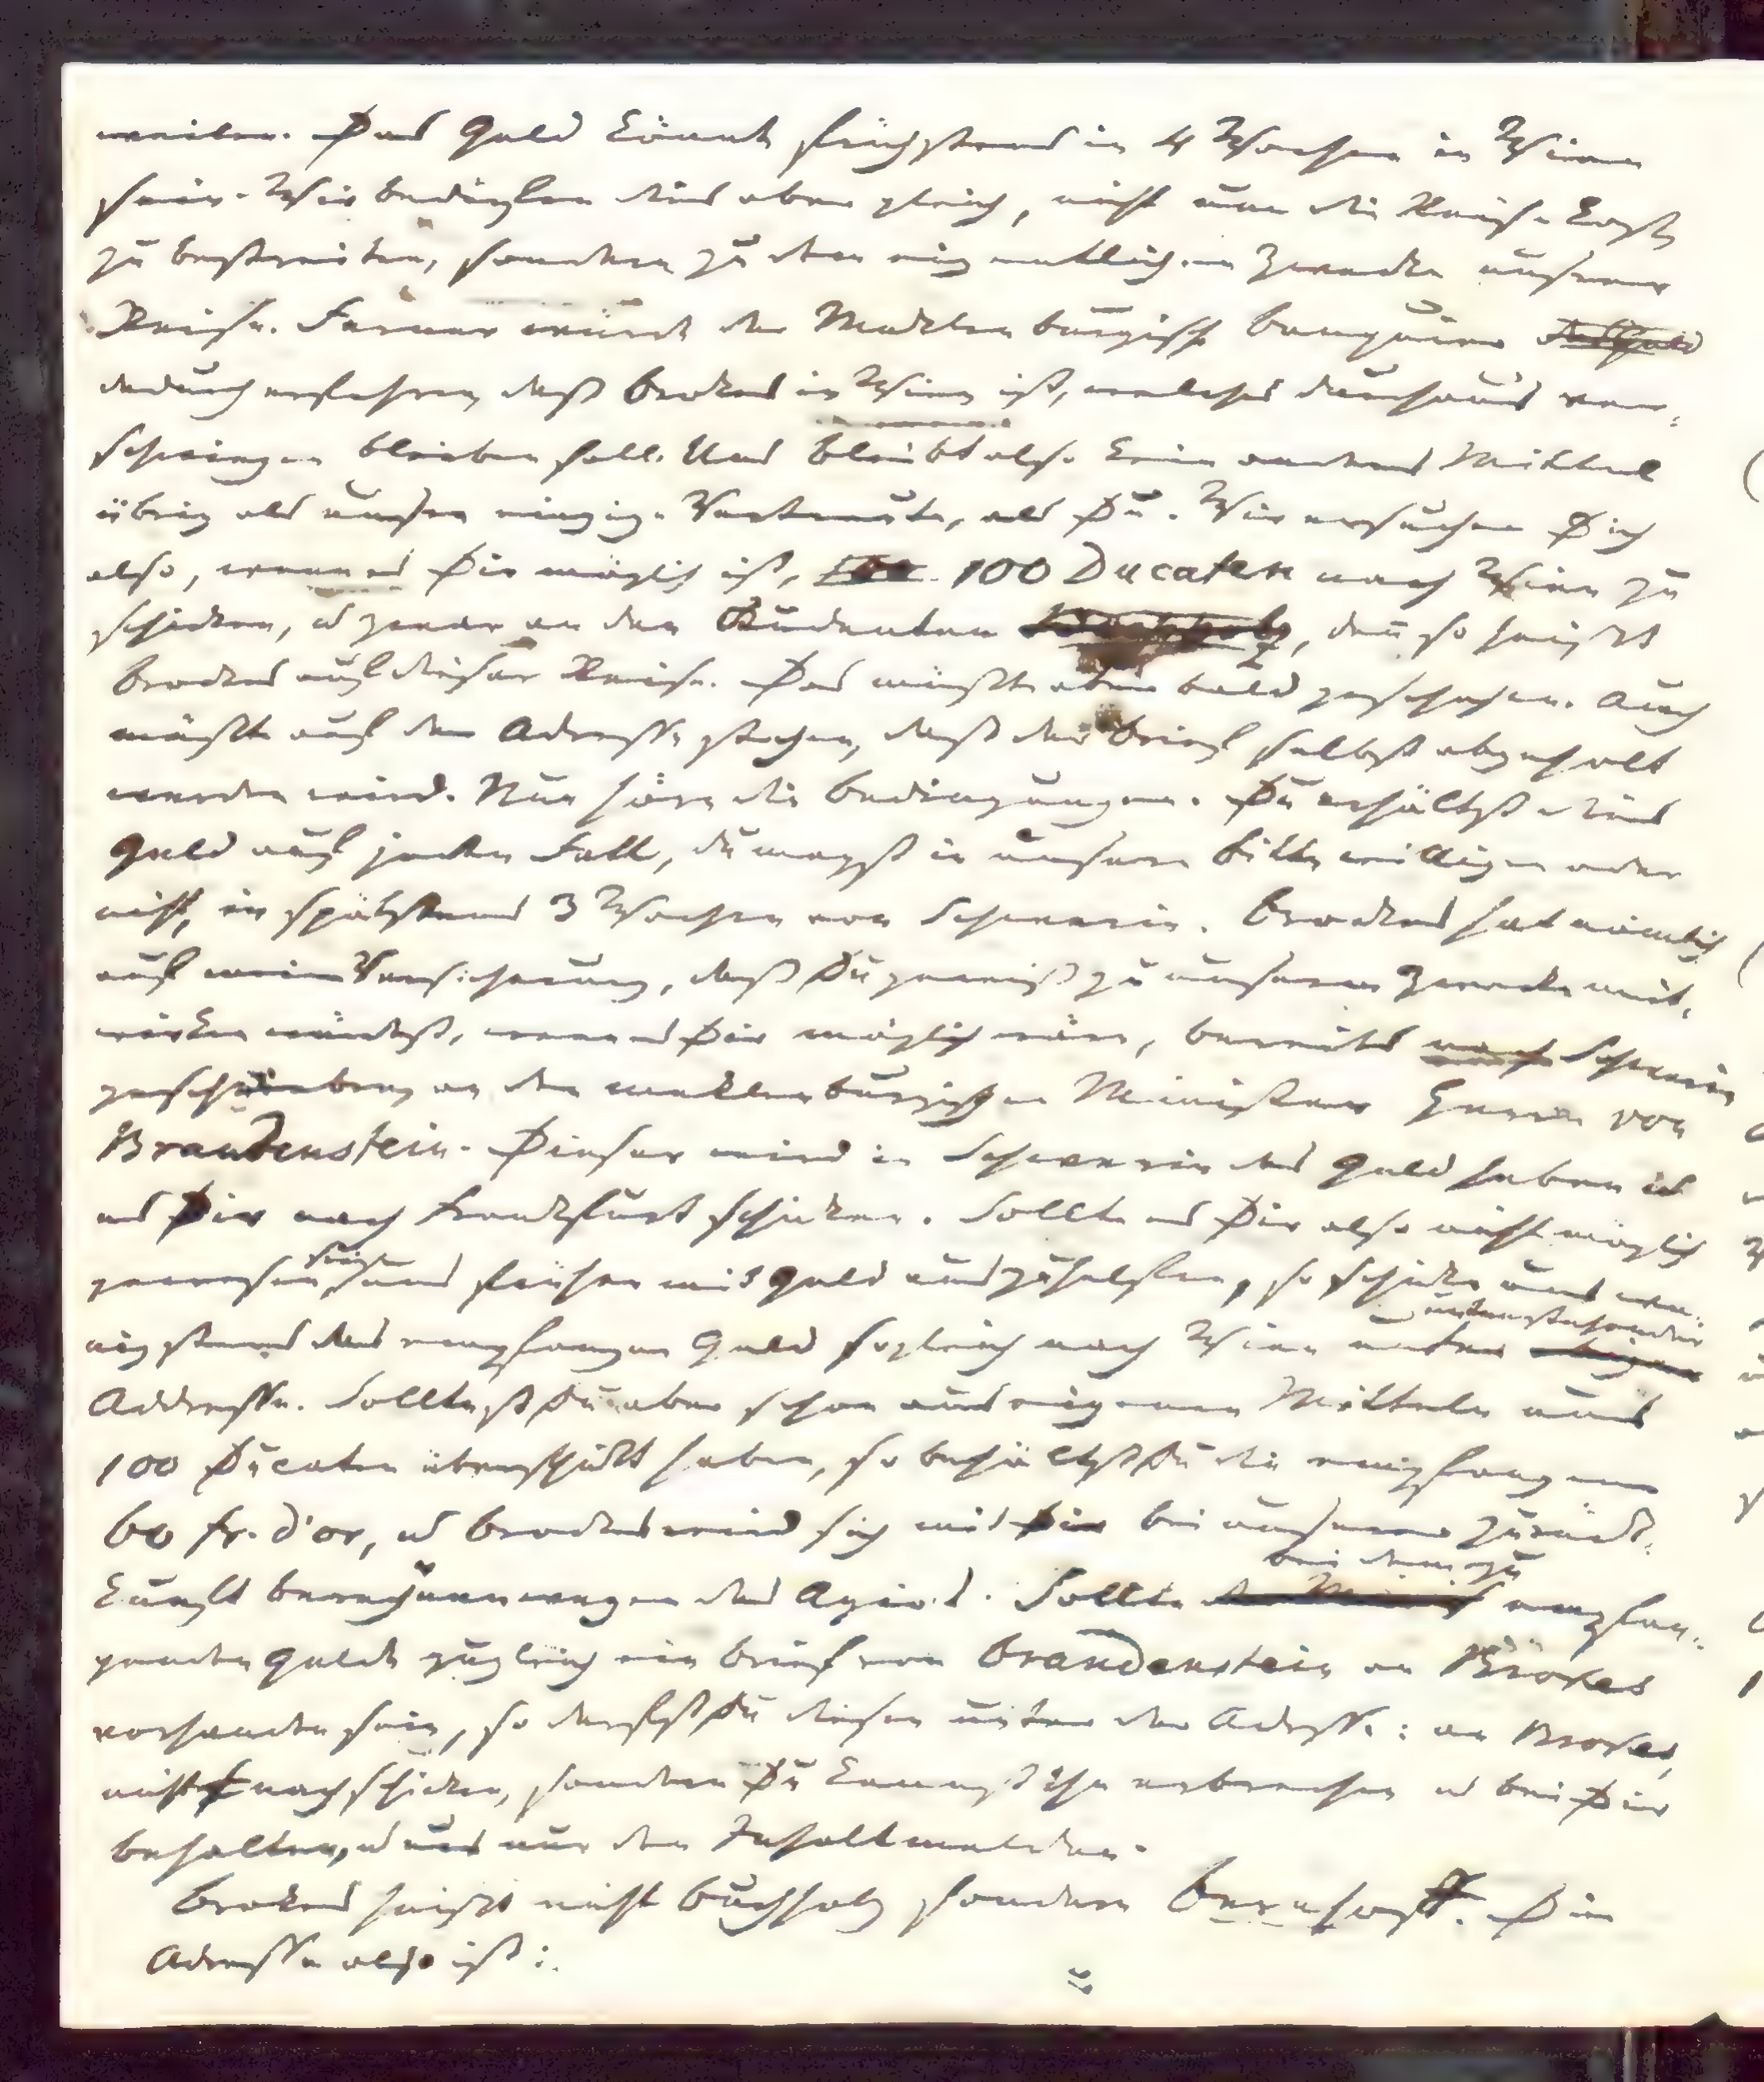 weilen. Das Geld könnte frühstens in 4 Wochen in Wien
sein. Wir bedürfen dies aber gleich, nicht nur die Reisekosten
zu bestreiten, sondern zu dem eigentlichen Zwecke unsrer
Reise. Ferner würde der Mecklenburgische Banquier
dadurch erfahren daß Brokes in Wien ist, welches durchaus ver-
schwiegen bleiben soll. Uns bleibt also kein andres Mittel
übrig als unser einziger Vertrauter, als Du. Wir ersuchen Dich
also, wenn es Dir möglich ist, 100 Ducaten nach Wien zu
schicken, u zwar an den Studenten Buchholz, denn so heißt
Brokes auf dieser Reise. Das müßte aber bald geschehen. Auch
müßte auf der Adresse stehen, daß der Brief selbst abgeholt
werden wird. Nun höre die Bedingungen. Du erhältst dies
Geld auf jeden Fall, du magst in unsere Bitte willigen oder
nicht, in spätstens 3 Wochen von Schwerin. Brokes hat nämlich
auf meine Versicherung, daß Du gewiß zu unserem Zwecke mit-
wirken würdest, wenn es Dir möglich wäre, bereits nach Schwerin
geschrieben an den meklenburgischen Minister Herrn von
Brandenstein. Dieser wird in Schwerin das Geld heben u
es Dir nach Frankfurt schicken. Sollte es Dir also nicht möglich
gewesen sein, uns früher mit Geld auszuhelfen, so schicke uns we-
nigstens das empfangne Geld sogleich nach Wien unter untenstehender
Addresse. Solltest Du aber schon aus eignen Mitteln uns
100 Ducaten überschickt haben, so behältst Du die empfangnen
60 Fr. d'or, u Brokes wird sich mit Dir bei unserer Zurück-
kunft berechnen wegen des Agios. Sollte bei dem zu empfan-
genden Gelde zugleich ein Brief von Brandenstein an Brokes
vorhanden sein, so darfst Du diesen unter der Adresse: an Brokes,
nicht nachschicken, sondern Du kannst ihn erbrechen u bei Dir
behalten, u uns nur den Inhalt melden.
Brokes heißt nicht Buchholz sondern Bernhoff. Die
Adresse also ist: